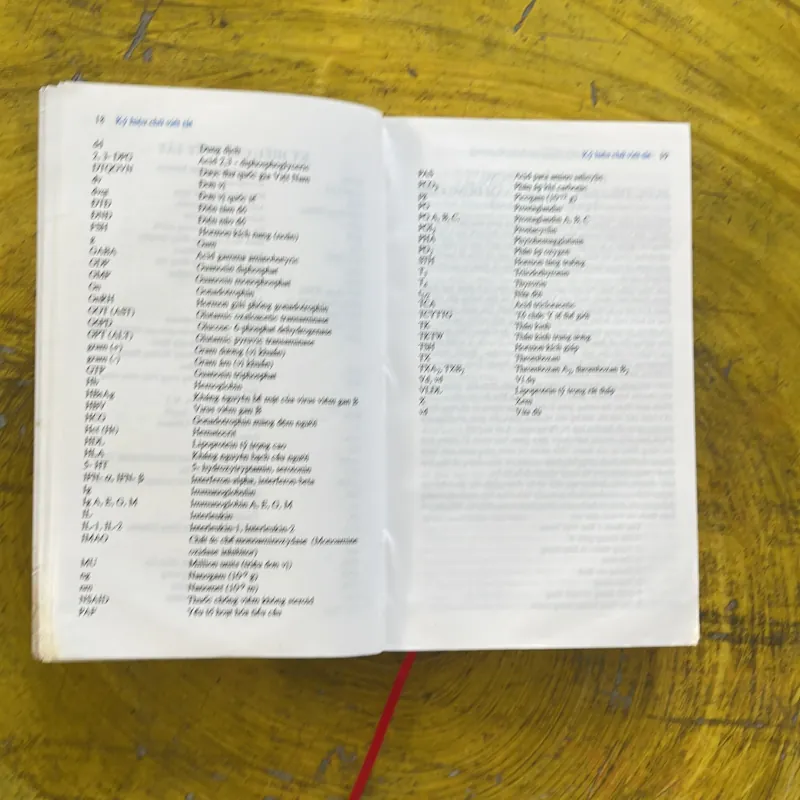 18 Ký hiệu chữ viết tắt
dd Dung dịch
2, 3- DPG Acid 2,3 - diphosphoglyceric
DTQGVN Dược thư quốc gia Việt Nam
đv Đơn vị
đvqt Đơn vị quốc tế
ĐTĐ Điện tâm đồ
ĐNĐ Điện não đồ
FSH Hormon kích nang (noãn)
g Gam
GABA Acid gamma aminobutyric
GDP Guanosin diphosphat
GMP Guanosin monophosphat
Gn Gonadotrophin
GnRH Hormon giải phóng gonadotrophin
GOT (AST) Glutamic oxaloacetic transaminase
G6PD Glucose- 6-phosphat dehydrogenase
GPT (ALT) Glutamic pyruvic transaminase
gram (+) Gram dương (vi khuẩn)
gram (-) Gram âm (vi khuẩn)
GTP Guanosin triphosphat
Hb Hemoglobin
HBsAg Kháng nguyên bề mặt của virus viêm gan B
HBV Virus viêm gan B
HCG Gonadotrophin màng đệm người
Hct (Ht) Hematocrit
HDL Lipoprotein tỷ trọng cao
HLA Kháng nguyên bạch cầu người
5- HT 5- hydroxytryptamin, serotonin
IFN- α, IFN- β Interferon alpha, interferon beta
Ig Immunoglobulin
Ig A, E, G, M Immunoglobulin A, E, G, M
IL- Interleukin
IL-1, IL-2 Interleukin-1, Interleukin-2
IMAO Chất ức chế monoaminoxydase (Monoamine
oxidase inhibitor)
MU Million units (triệu đơn vị)
ng Nanogam (10⁻⁹ g)
nm Nanomet (10⁻⁹ m)
NSAID Thuốc chống viêm không steroid
PAF Yếu tố hoạt hóa tiểu cầu
Ký hiệu chữ viết tắt 19
PAS Acid para amino salicylic
PCO₂ Phân áp khí carbonic
pg Picogam (10⁻¹² g)
PG Prostaglandin
PG A, B, C. Prostaglandin A, B, C
PGI₂ Prostacyclin
PHA Phytohemagglutinin
PO₂ Phân áp oxygen
STH Hormon tăng trưởng
T₃ Triiodothyronin
T₄ Thyroxin
Nửa đời
TCA Acid tricloacetic
TCYTTG Tổ chức Y tế thế giới
TK Thần kinh
TKTW Thần kinh trung ương
TSH Hormon kích giáp
TX Thromboxan
TXA₂, TXB₂ Thromboxan A₂, thromboxan B₂
Vd, vd Ví dụ
VLDL Lipoprotein tỷ trọng rất thấp
X Xem
vđ Vận độ